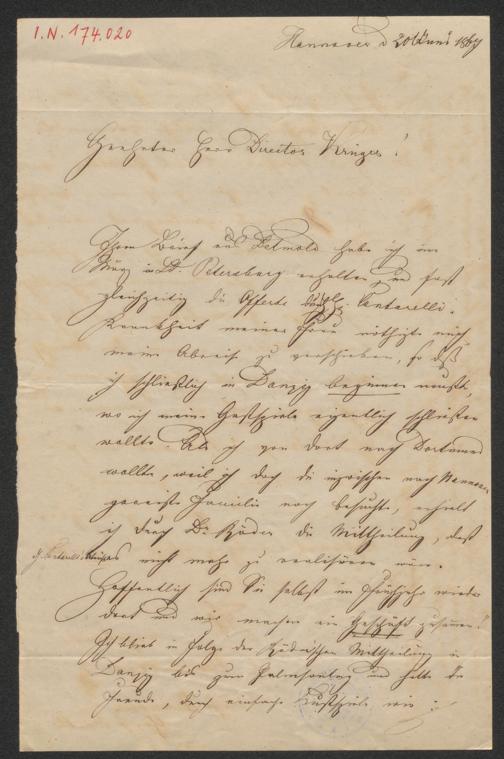 I.N. 174.020
Hannover d 20t Juni 1869
Geehrter Herr Director Krüger!
Ihren Brief aus Detmold habe ich im
März in St. Petersburg erhalten und fast
gleichzeitig die Offerte Cantarelli.
Krankheit meiner Frau nöthigte mich
meine Abreise zu verschieben, so daß
ich schließlich in Danzig beginnen mußte,
wo ich meine Gastspiele eigentlich schließen
wollte. Als ich von dort nach
wollte, weil ich doch die inzwischen nach Hannover
gereiste Familie noch besuchte, erhielt
ich durch Dr Röder die Mittheilung, daß
nicht mehr zu realisiren wäre.
Hoffentlich sind Sie selbst im Frühjahr wieder
dort und wir machen ein Geschäft zusammen!
Ich blieb in Folge der Röderschen Mittheilung in
Danzig bis zum Palmsonntag und hatte die
Freude, durch einfache Lustspiele wie: